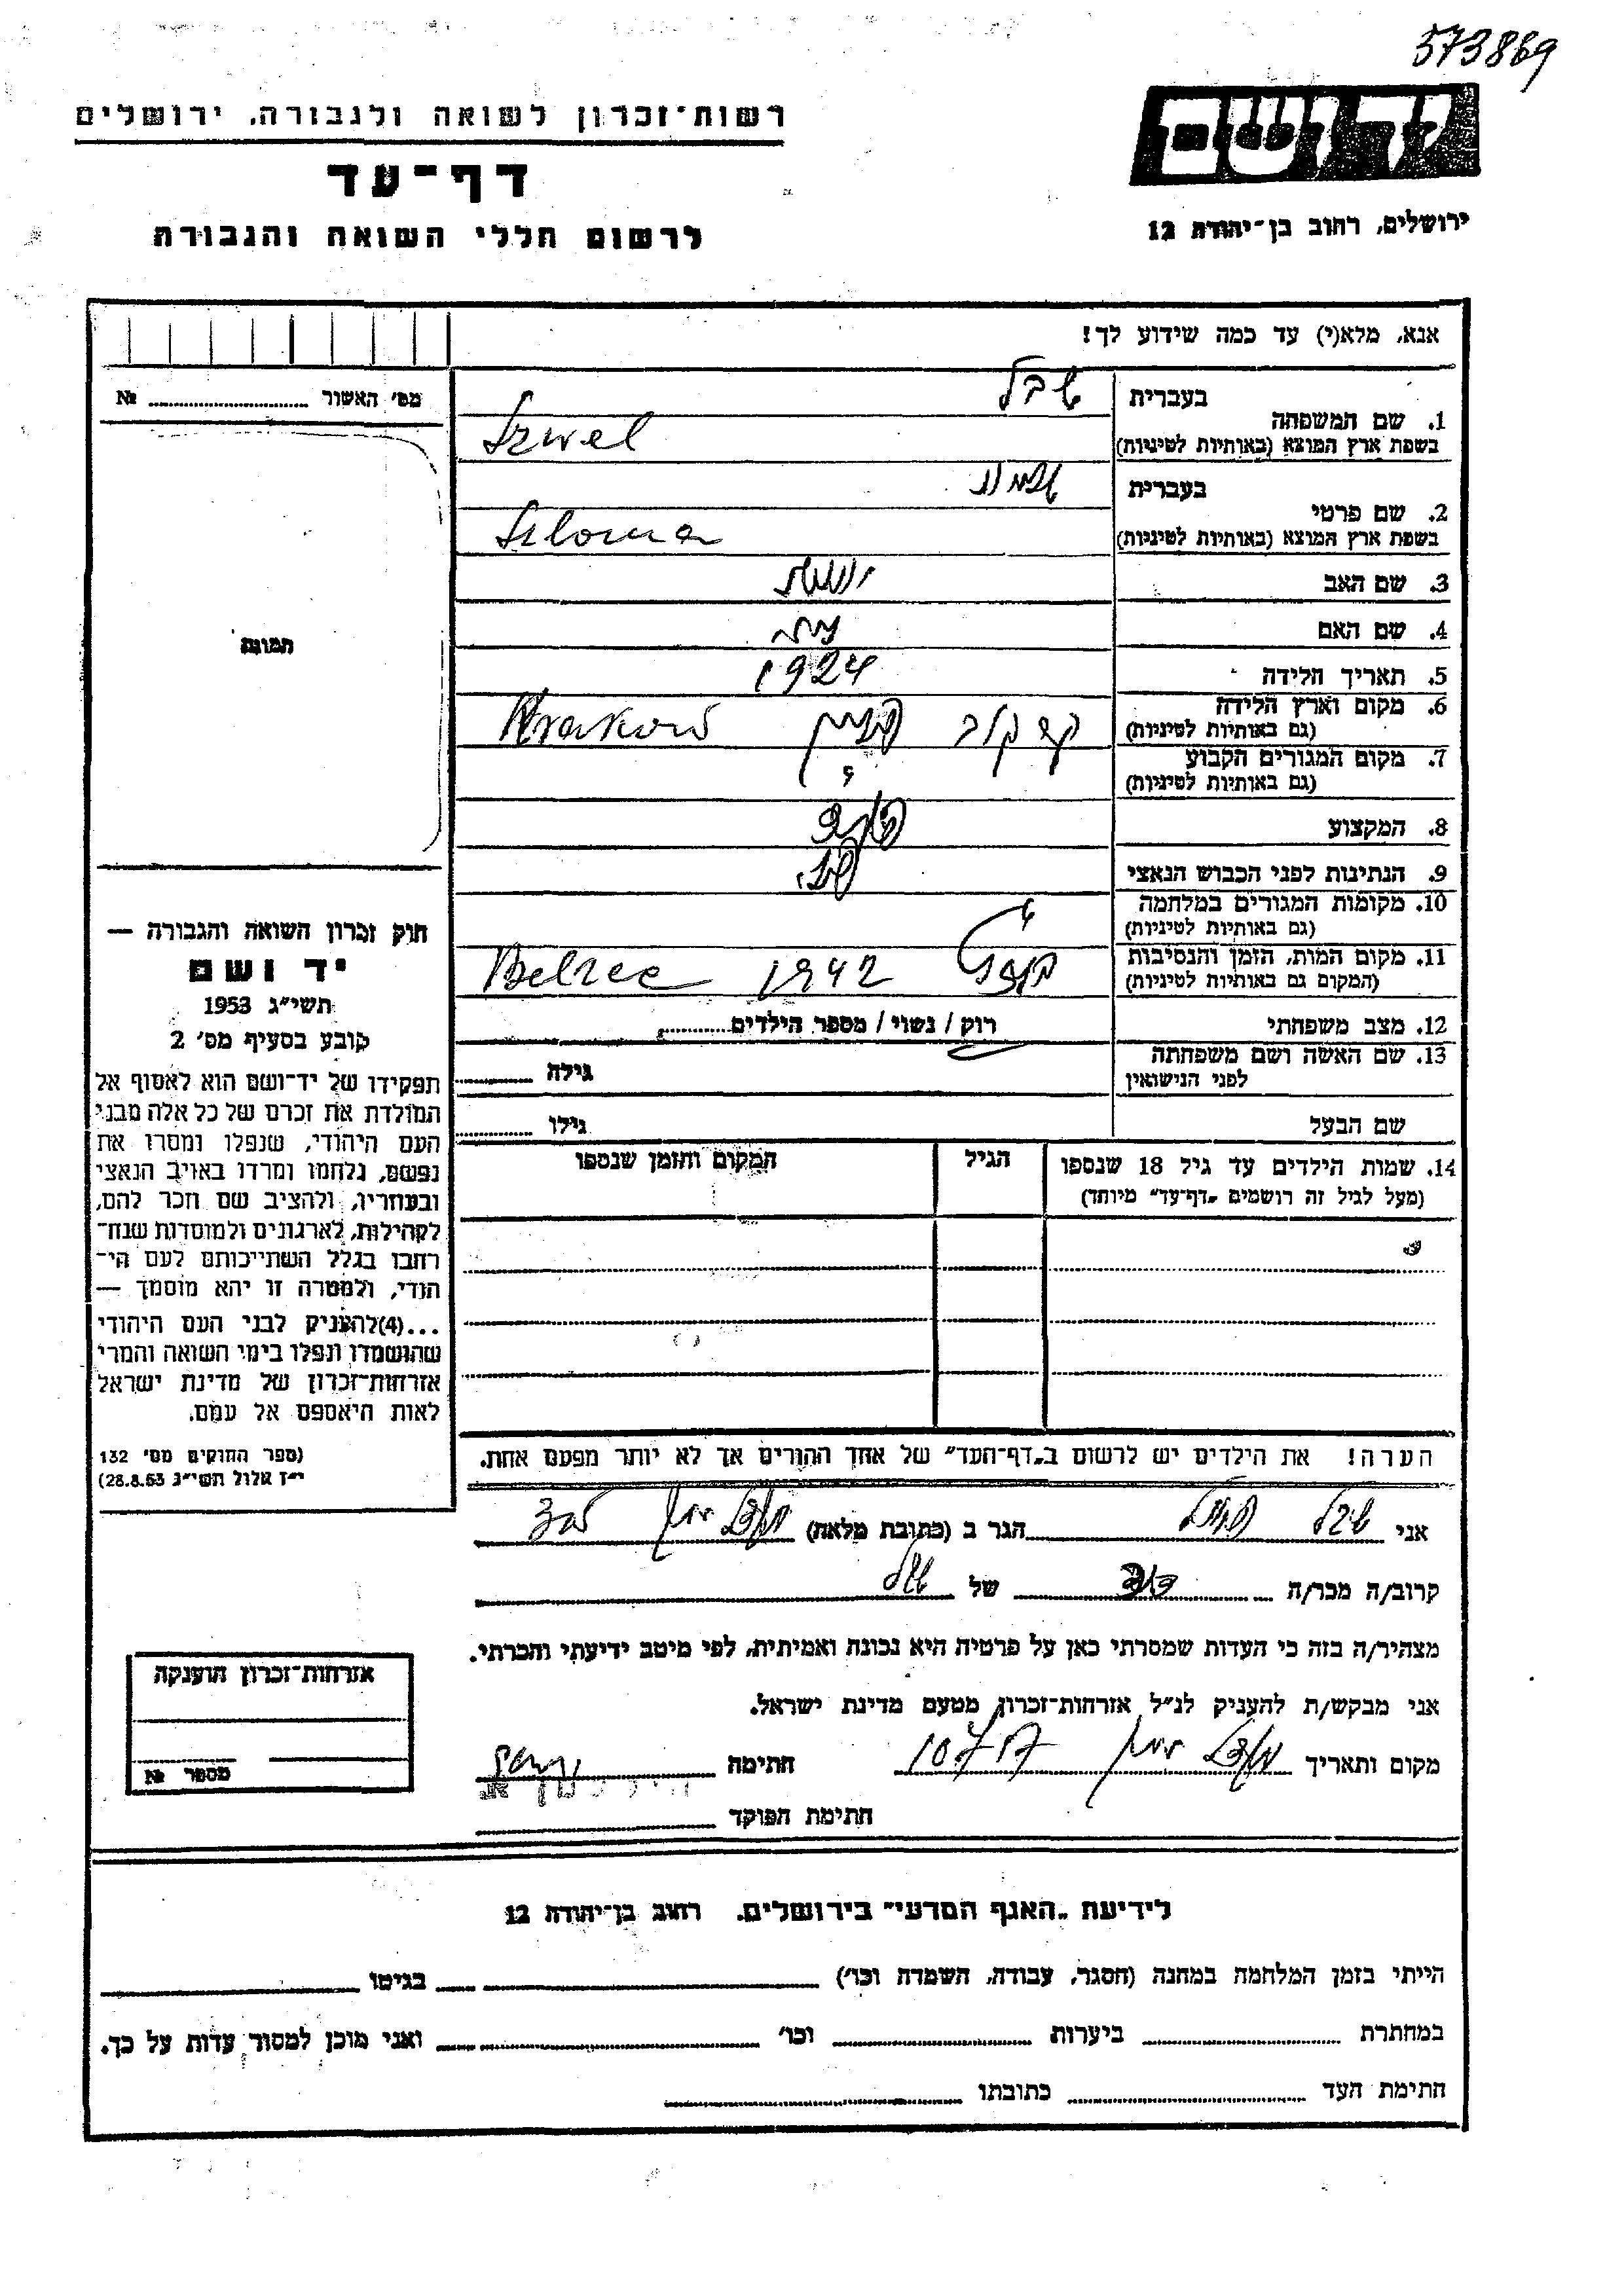 573869
יד ושם
רשות־זכרון לשואה ולגבורה, ירושלים
דף־עד
לרשום חללי השואה והגבורה
ירושלים, רחוב בן־יהודה 12
אנא, מלא(י) עד כמה שידוע לך!
מס׳ האשור № ........
תמונה
1. שם המשפחה
בעברית שבל
בשפת ארץ המוצא (באותיות לטיניות) Szwel
2. שם פרטי
בעברית
בשפת ארץ המוצא (באותיות לטיניות) Szloma
3. שם האב
4. שם האם
5. תאריך הלידה 1924
6. מקום וארץ הלידה קרקוב פולין Kraków
(גם באותיות לטיניות)
7. מקום המגורים הקבוע
(גם באותיות לטיניות)
8. המקצוע
9. הנתינות לפני הכבוש הנאצי
10. מקומות המגורים במלחמה
(גם באותיות לטיניות)
11. מקום המות, הזמן והנסיבות 1942 Belzec
(המקום גם באותיות לטיניות)
12. מצב משפחתי רוק / נשוי / מספר הילדים ........
13. שם האשה ושם משפחתה
לפני הנישואין
גילה ........
שם הבעל
גילו ........
14. שמות הילדים עד גיל 18 שנספו
(מעל לגיל זה רושמים „דף־עד״ מיוחד)
הגיל
המקום והזמן שנספו
חוק זכרון השואה והגבורה —
יד ושם
תשי״ג 1953
קובע בסעיף מס׳ 2
תפקידו של יד־ושם הוא לאסוף אל
המולדת את זכרם של כל אלה מבני
העם היהודי, שנפלו ומסרו את
נפשם, נלחמו ומרדו באויב הנאצי
ובעוזריו, ולהציב שם וזכר להם,
לקהילות, לארגונים ולמוסדות שנח־
רחבו בגלל השתייכותם לעם הי־
הודי, ולמטרה זו יהא מוסמך —
...(4)להעניק לבני העם היהודי
שהושמדו ונפלו בימי השואה והמרי
אזרחות־זכרון של מדינת ישראל
לאות היאספם אל עמם.
(ספר החוקים מס׳ 132
י״ז אלול תשי״ג 28.8.53)
הערה! את הילדים יש לרשום ב„דף־העד״ של אחד ההורים אך לא יותר מפעם אחת.
אני שבל הגר ב (כתובת מלאה)
קרוב/ה מכר/ה של
מצהיר/ה בזה כי העדות שמסרתי כאן על פרטיה היא נכונה ואמיתית, לפי מיטב ידיעתי והכרתי.
אני מבקש/ת להעניק לנ״ל אזרחות־זכרון מטעם מדינת ישראל.
מקום ותאריך חתימה
חתימת הפוקד
אזרחות־זכרון הוענקה
מספר №
לידיעת „האגף המדעי״ בירושלים, רחוב בן־יהודה 12
הייתי בזמן המלחמה במחנה (הסגר, עבודה, השמדה וכו׳) בגיטו
במחתרת ביערות וכו׳ ואני מוכן למסור עדות על כך.
חתימת העד כתובתו